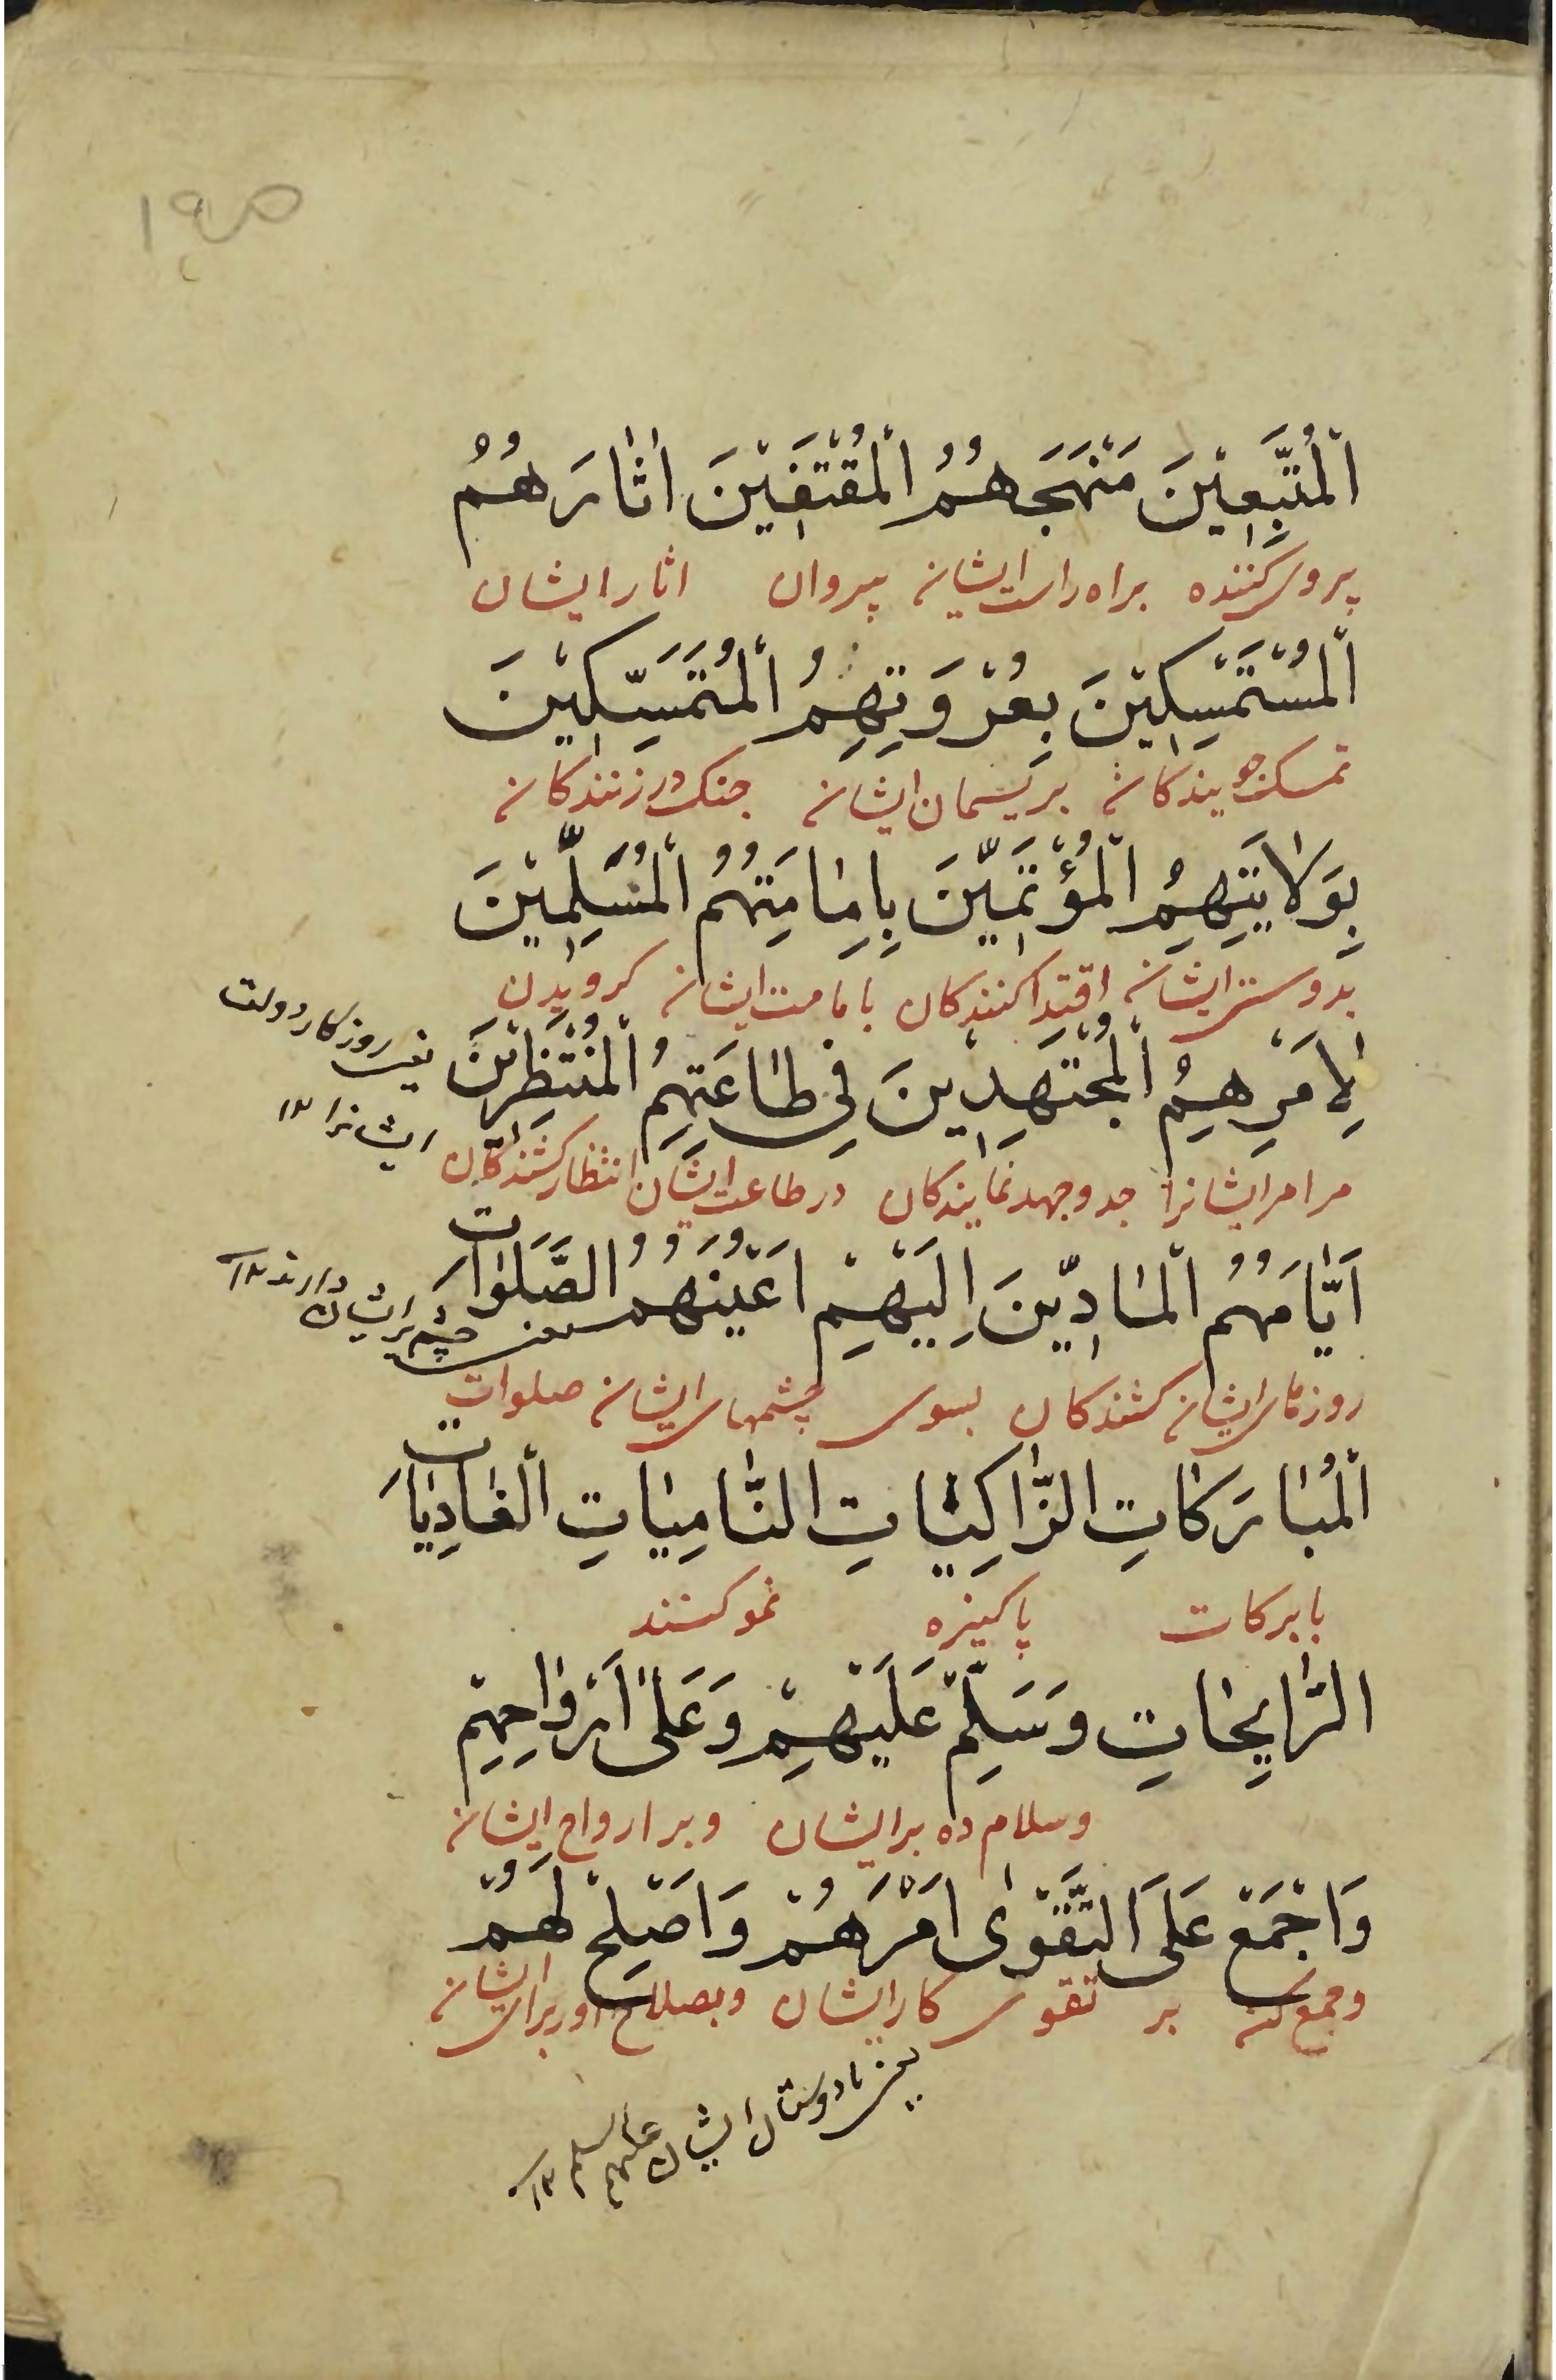 ص۱۹
اَلْمُتَّبِعِيْنَ مَنْهَجَهُمُ الْمُقْتَفِيْنَ اٰثٰارَهُمُ
پروی کننده براه راست ایشان پیروان اثار ایشان
اَلْمُسْتَمْسِكِيْنَ بِعُرْوَتِهِمُ الْمُتَمَسِّكِيْنَ
تمسک جویندکان بریسمان ایشان جنک در زنندکان
بِوَلٰايَتِهِمُ الْمُؤْتَمِّيْنَ بِاِمٰامَتِهُمُ الْمُسَلِّمِيْنَ
بدوستی ایشان اقتدا کنندکان بامامت ایشان کرویدن
لِاَمْرِهِمُ الْمُجْتَهِدِيْنَ فِي طٰاعَتِهِمُ الْمُنْتَظِرِيْنَ
یعنی روزکار دولت
ایشانرا ۱۲
مرامر ایشانرا جد وجهد نمایندکان در طاعت ایشان انتظار کشندکان
اَيّٰامَهُمُ الْمٰادِّيْنَ اِلَيْهِمْ اَعْيُنَهُمُ الصَّلَوٰاتِ
یعنی چشم بر ایشان دارند ۱۲
روزهای ایشان کشندکان بسوی چشمهای ایشان صلوات
اَلْمُبٰارَكٰاتِ الزّٰاكِيٰاتِ النّٰامِيٰاتِ الْغٰادِيٰاتِ
بابرکات پاکیزه نمو کنند
الرّٰايِحٰاتِ وَسَلِّمْ عَلَيْهِمْ وَعَلىٰ اَرْوٰاحِهِمْ
وسلام ده برایشان وبر ارواح ایشان
وَاجْمَعْ عَلَى التَّقْوٰى اَمْرَهُمْ وَاَصْلِحْ لَهُمْ
وجمع کن بر تقوی کار ایشان وبصلاح اور برای ایشان
یعنی با دوستان ایشان علیهم السلم ۱۲